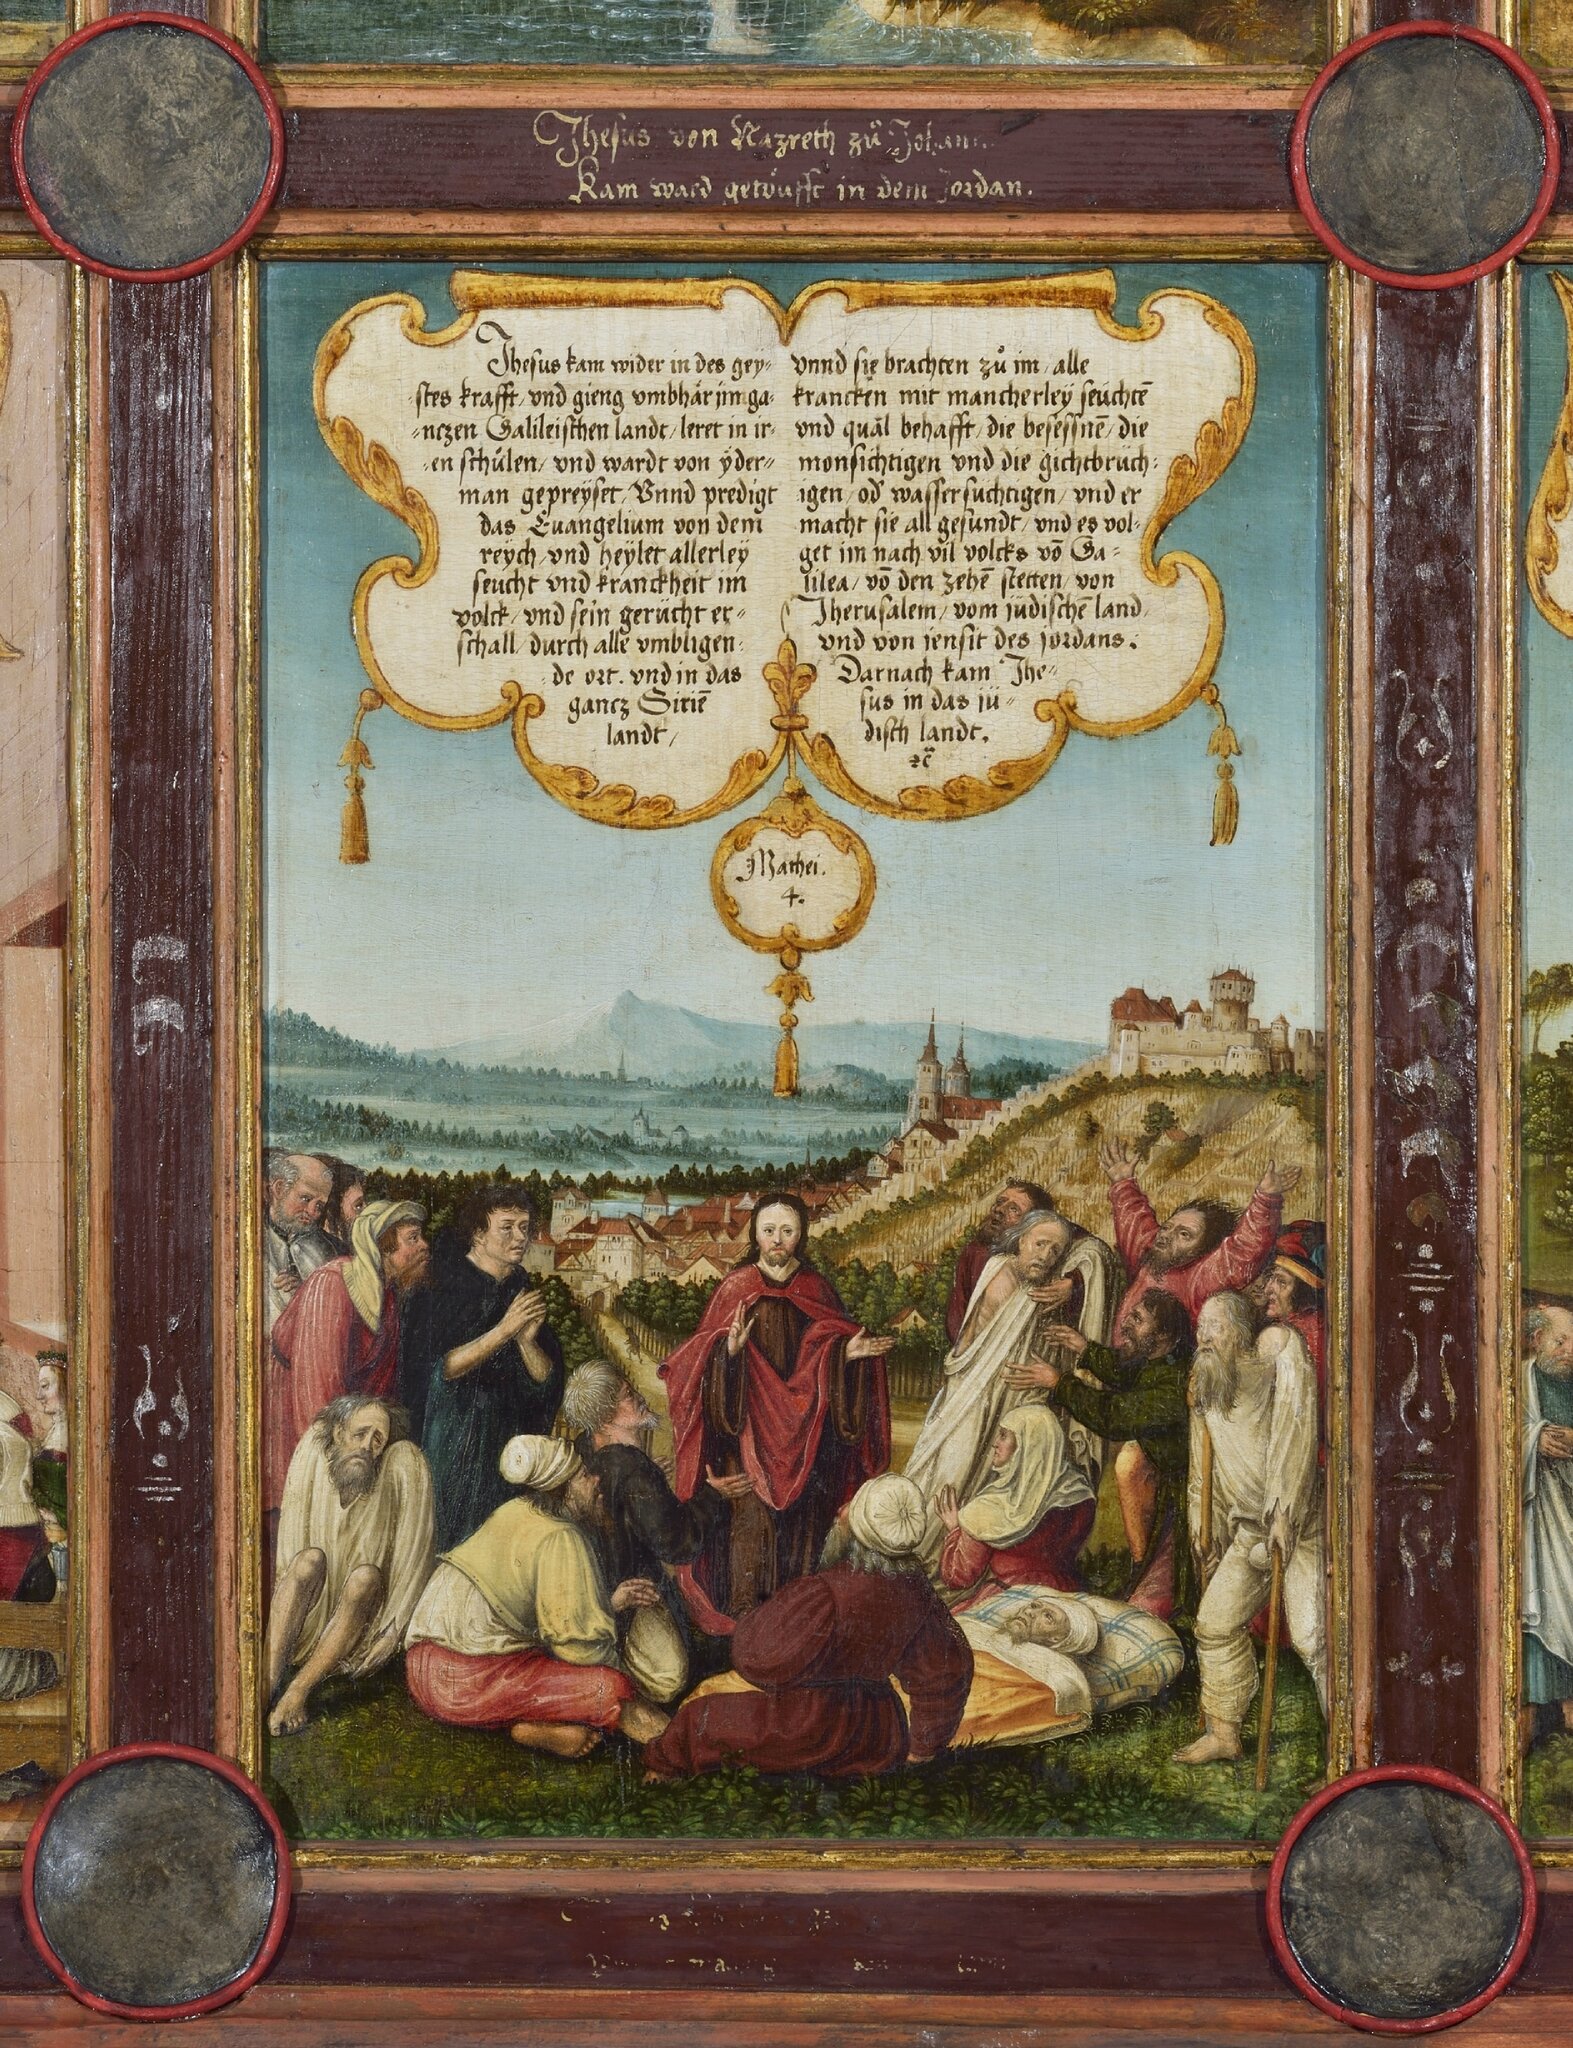 Jhesus von Nazreth zů Johann.
Kam ward getöufft in dem Jordan.
Jhesus kam wider in des gey-
stes krafft/ vnd gieng vmbhår jm ga-
-nczen Galileischen landt/ leret in ir-
-en schůlen/ vnd wardt von ÿder-
man gepreÿset/ Vnnd predigt
das Euangelium von dem
reÿch/ vnd heÿlet allerleÿ
seücht vnd kranckheit im
volck/ vnd sein gerücht er-
schall/ durch alle vmbligen-
de ort. vnd in das
gancz Siriē
landt/
vnnd sie brachten zů im/ alle
krancken mit mancherleÿ seüchtē
vnd quål behafft/ die besessnē/ die
monsichtigen vnd die gichtbrüch-
igen/ od' wassersüchtigen/ vnd er
macht sie all gesundt/ vnd es vol-
get im nach vil volcks vō Ga-
lilea/ vō den zehē stetten/ von
Jherusalem/ vom jüdischē land/
vnd von jensit des jordans.
Darnach kam Jhe-
sus in das jü-
disch landt.
ꝛc̃
Mathei.
4.